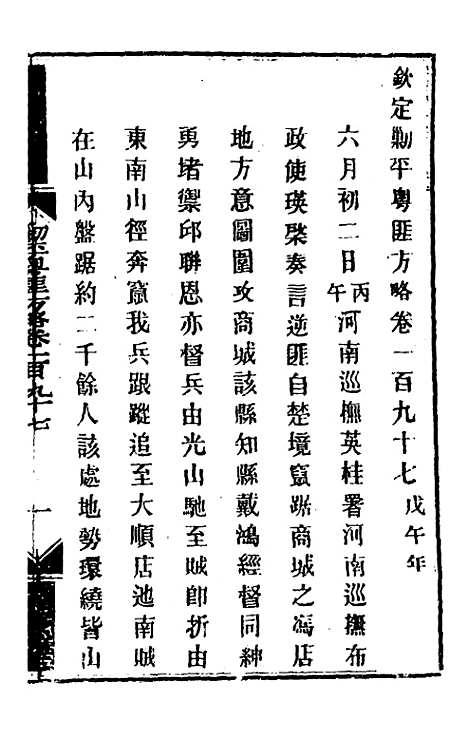 欽定勦平粵匪方略卷一百九十七戊午年
六月初二日丙午河南巡撫英桂署河南巡撫布
政使瑛棨奏言逆匪自楚境竄踞商城之馮店
地方意圖圍攻商城該縣知縣戴鴻經督同紳
勇堵禦邱聯恩亦督兵由光山馳至賊卽折由
東南山徑奔竄我兵跟蹤追至大順店迤南賊
在山內盤踞約二千餘人該處地勢環繞皆山
勦平粵匪方略卷一百九十七
一